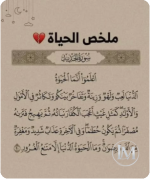 ملخص الحياة 💔
سورة الحديد
اعلموا أنما الحيوة
الدنيا لعب ولهو وزينة وتفاخر بينكم وتكاثر في الأموال
والأولاد كمثل غيث أعجب الكفار نباته ثم يهيج فتراه
مصفرا ثم يكون حطاما وفي الآخرة عذاب شديد ومغفرة
من الله ورضوان وما الحيوة الدنيا إلا متاع الغرور